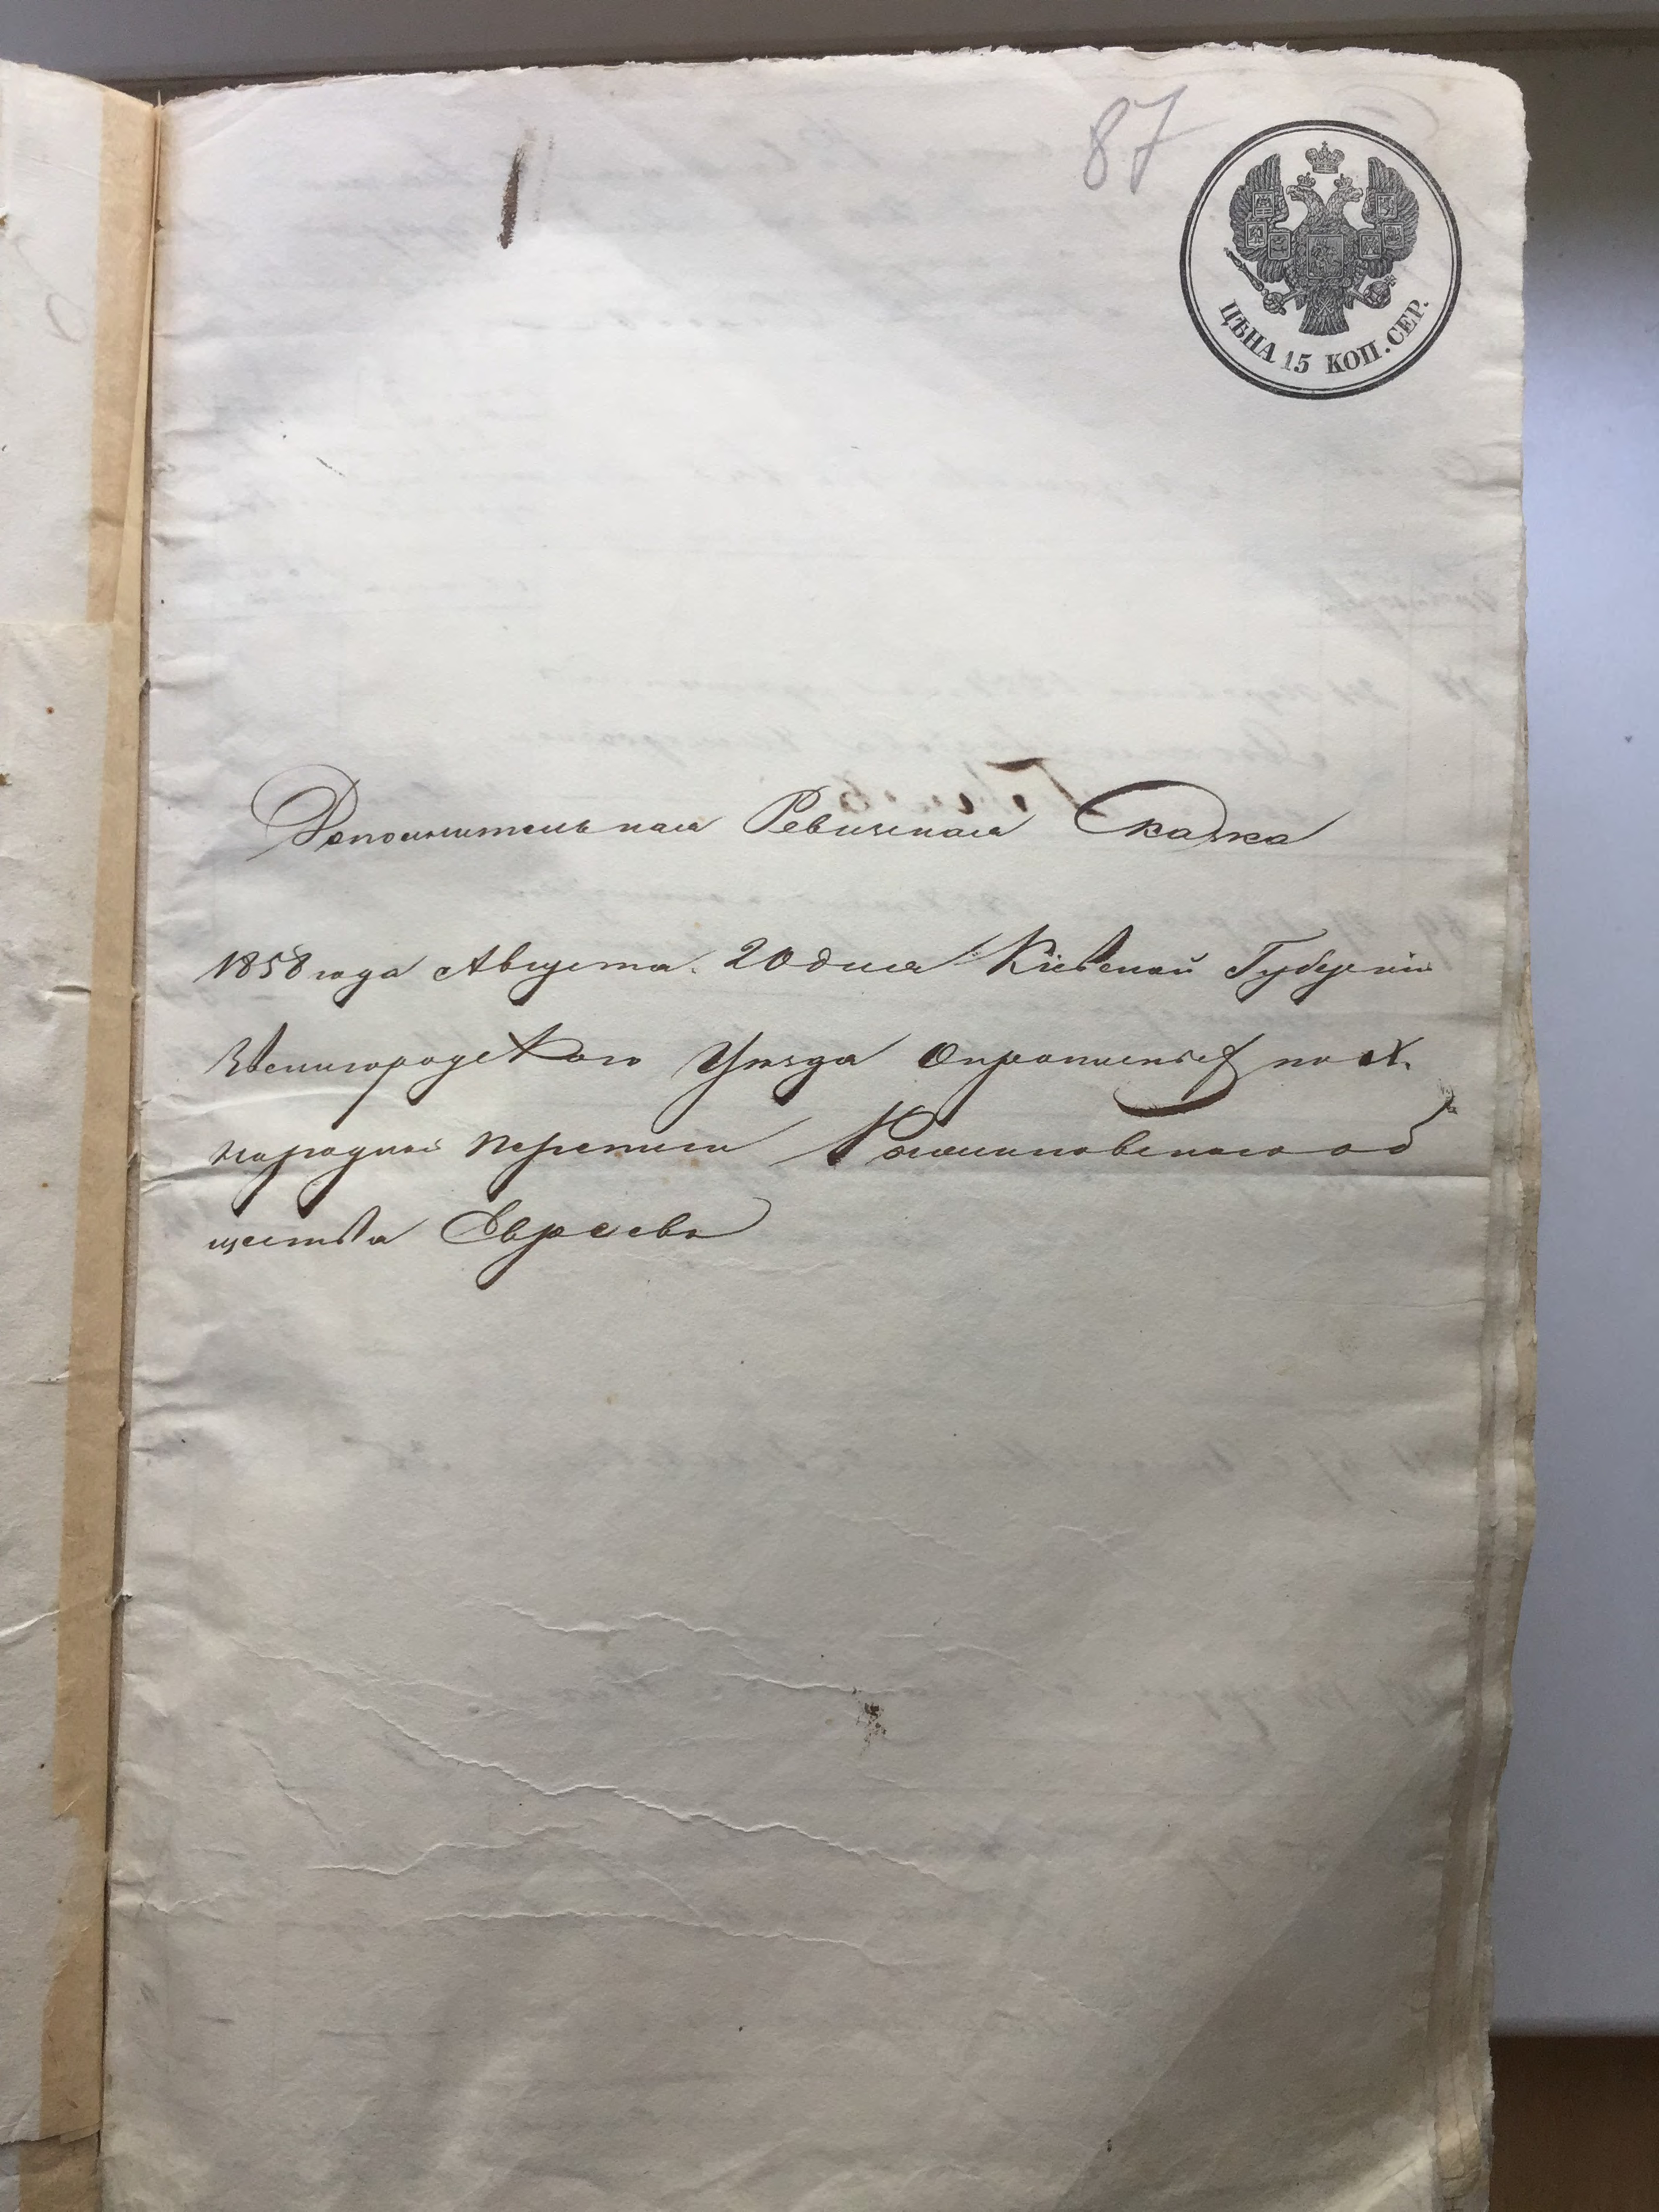 87
ЦѢНА 15 КОП. СЕР.
Дополнительная Ревизская Сказка
1858 года Августа 20 дня Кіевской Губерніи
Звенигородского Уезда О пропис­ных по X.
народной переписи общества Евреевъ